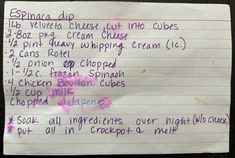 Espinaca dip
·1lb. Velveeta cheese, cut into cubes
·2-8oz pkg cream cheese
·1/2 pint heavy whipping cream (1c.)
·2 cans Rotel
·1/2 onion chopped
·1-1/2c. frozen Spinach
·4 chicken Bouillon Cubes
·1/2 cup milk
Chopped Jalapeño
* Soak all ingredients over night (w/o cheese)
* put all in Crockpot & melt